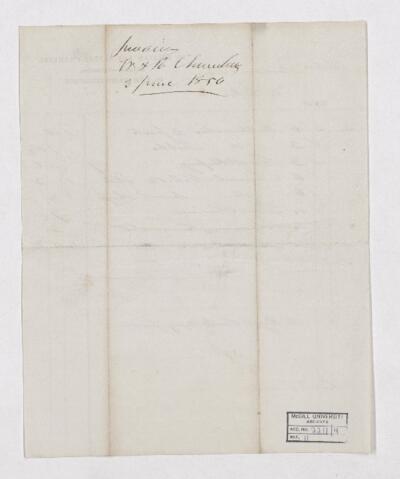 Invoice
W & R Chambers
3 June 1856
McGILL UNIVERSITY
ARCHIVES
ACC. NO.
REF. 11